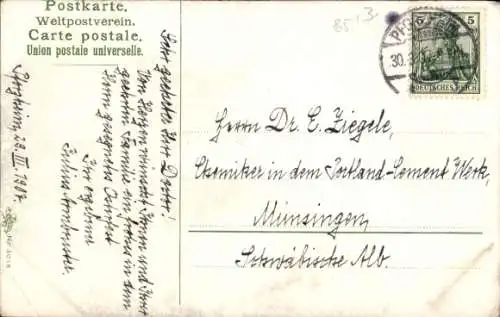 Postkarte.
Weltpostverein.
Carte postale.
Union postale universelle.
85,3.
30.
5 5
DEUTSCHES REICH
Pforzheim, 29. III. 1907
Sehr geehrter Herr Doctor!
Von Herzen wünscht Ihnen und Ihrer
geehrten Familie ein frohes in dem
Herrn gesegnetes Osterfest
Ihr ergebener
Julius
Herrn Dr. E. Ziegele,
Chemiker in dem Portland-Cement Werk,
Münsingen,
Schwäbische Alb.